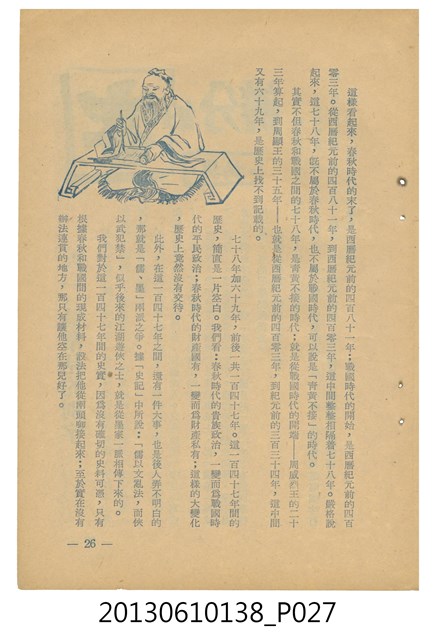 這樣看起來，春秋時代的末了，是西曆紀元前的四百八十一年；戰國時代的開始，是西曆紀元前的四百
零三年。從西曆紀元前的四百八十一年，到西曆紀元前的四百零三年，這中間整整相隔着七十八年。嚴格說
起來，這七十八年，既不屬於春秋時代，也不屬於戰國時代，可以說是「青黃不接」的時代。
其實不但春秋和戰國之間的七十八年，是青黃不接的時代，就是從戰國時代的開端——周威烈王的二十
三年算起，到周顯王的三十五年——也就是從西曆紀元前的四百零三年，到紀元前的三百三十四年，這中間
又有六十九年，是歷史上找不到記載的。
七十八年加六十九年，前後一共一百四十七年。這一百四十七年間的
歷史，簡直是一片空白。我們看：春秋時代的貴族政治，一變而爲戰國時
代的平民政治；春秋時代的財產國有，一變而爲財產私有；這樣的大變化
，歷史上竟然沒有交待。
此外，在這一百四十七年之間，還有一件大事，也是後人弄不明白的
，那就是「儒、墨」兩派之爭。據「史記」中所說：「儒以文亂法，而俠
以武犯禁」，似乎後來的江湖遊俠之士，就是從墨家一脈相傳下來的。
我們對於這一百四十七年間的史實，因爲沒有確切的史料可憑，只有
根據春秋和戰國間的現成材料，設法把他從兩頭銜接起來；至於實在沒有
辦法連貫的地方，那只有讓他空在那兒好了。
— 26 —
20130610138_P027